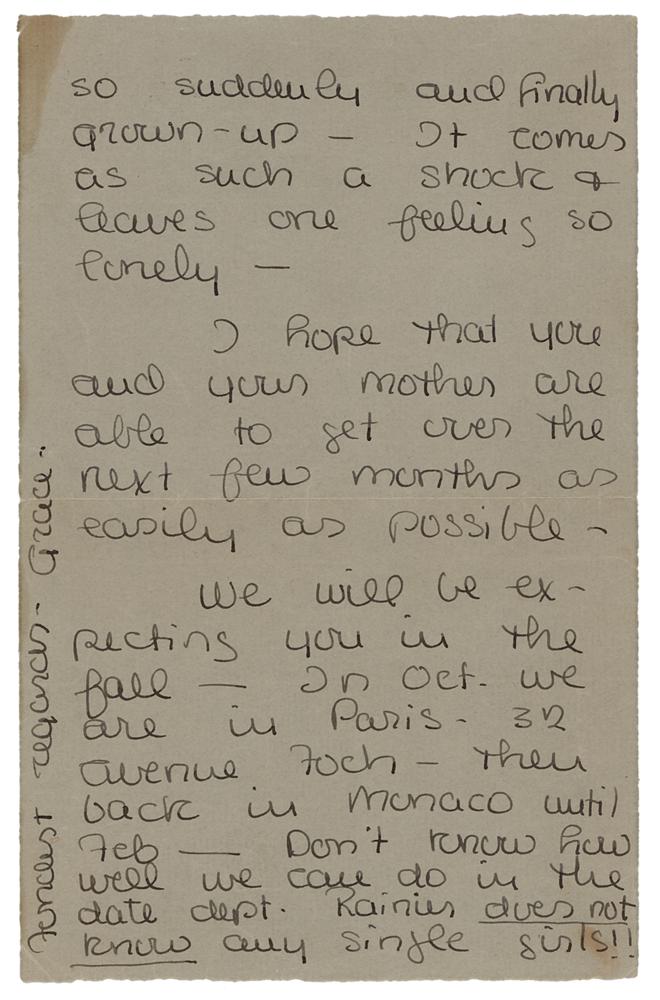 so suddenly and finally
grown-up — It comes
as such a shock &
leaves one feeling so
lonely —
I hope that you
and your mother are
able to get over the
next few months as
easily as possible -
We will be ex-
pecting you in the
fall — In Oct. we
are in Paris - 32
avenue Foch - then
back in Monaco until
Feb — Don't know how
well we can do in the
date dept. Rainier does not
know any single girls!!
Fondest regards - Grace.